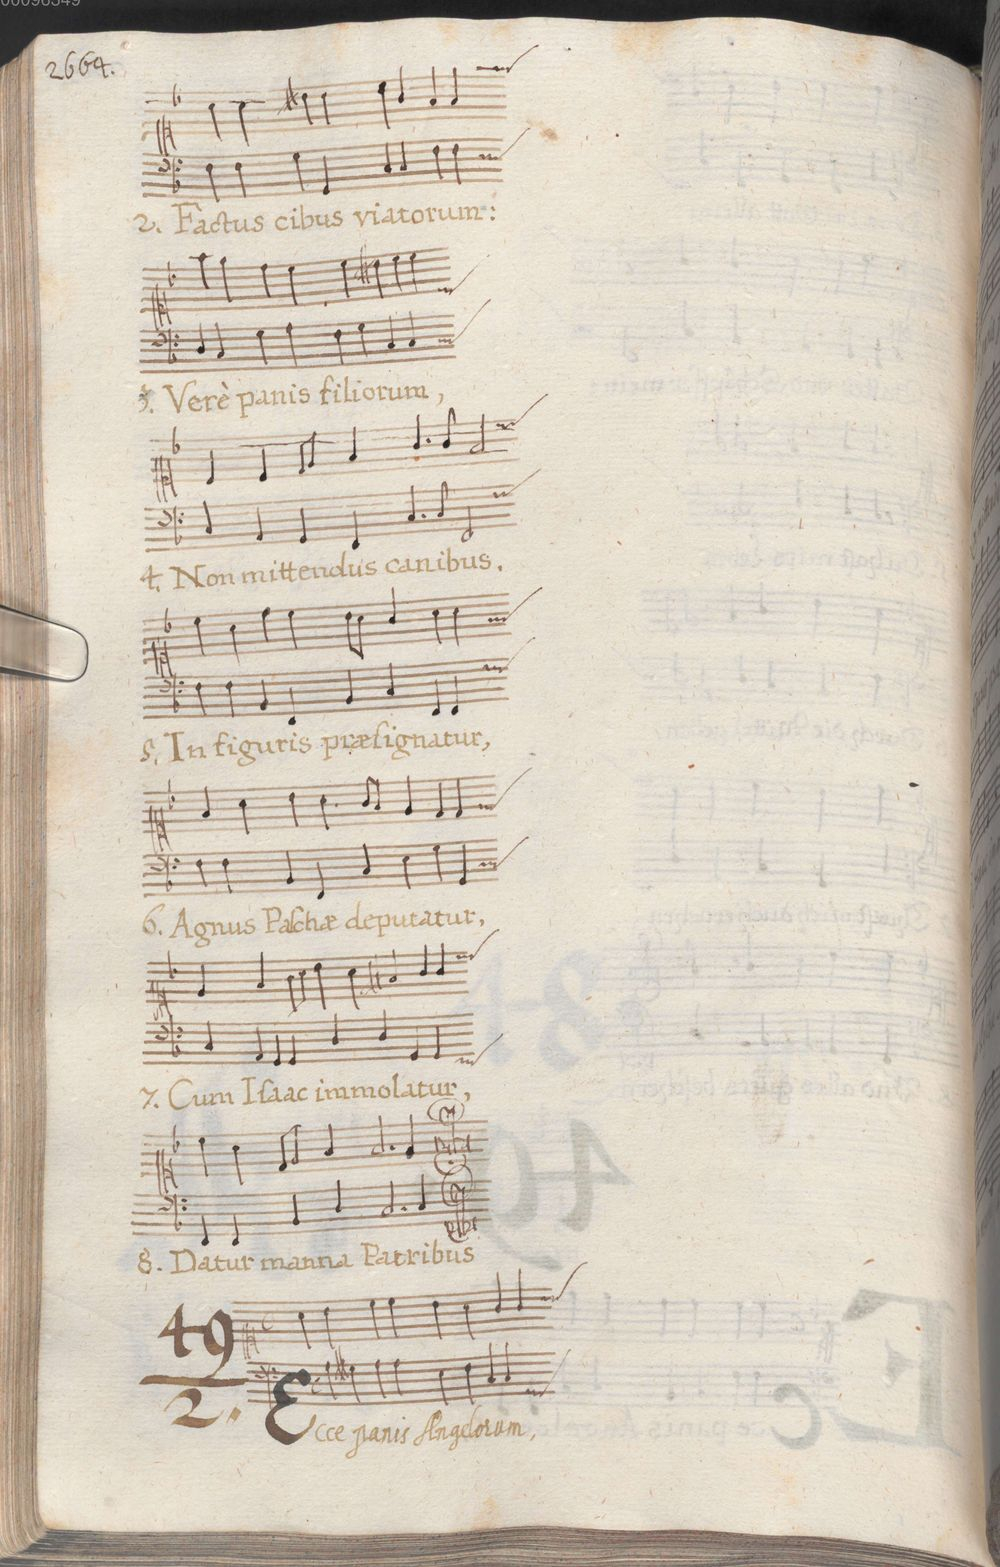 2664.
2. Factus cibus viatorum:
3. Verè panis filiorum,
4. Non mittendus canibus.
5. In figuris præſignatur,
6. Agnus Paſchæ deputatur,
7. Cum Iſaac immolatur,
8. Datur manna Patribus
49
2.
Ecce panis Angelorum,